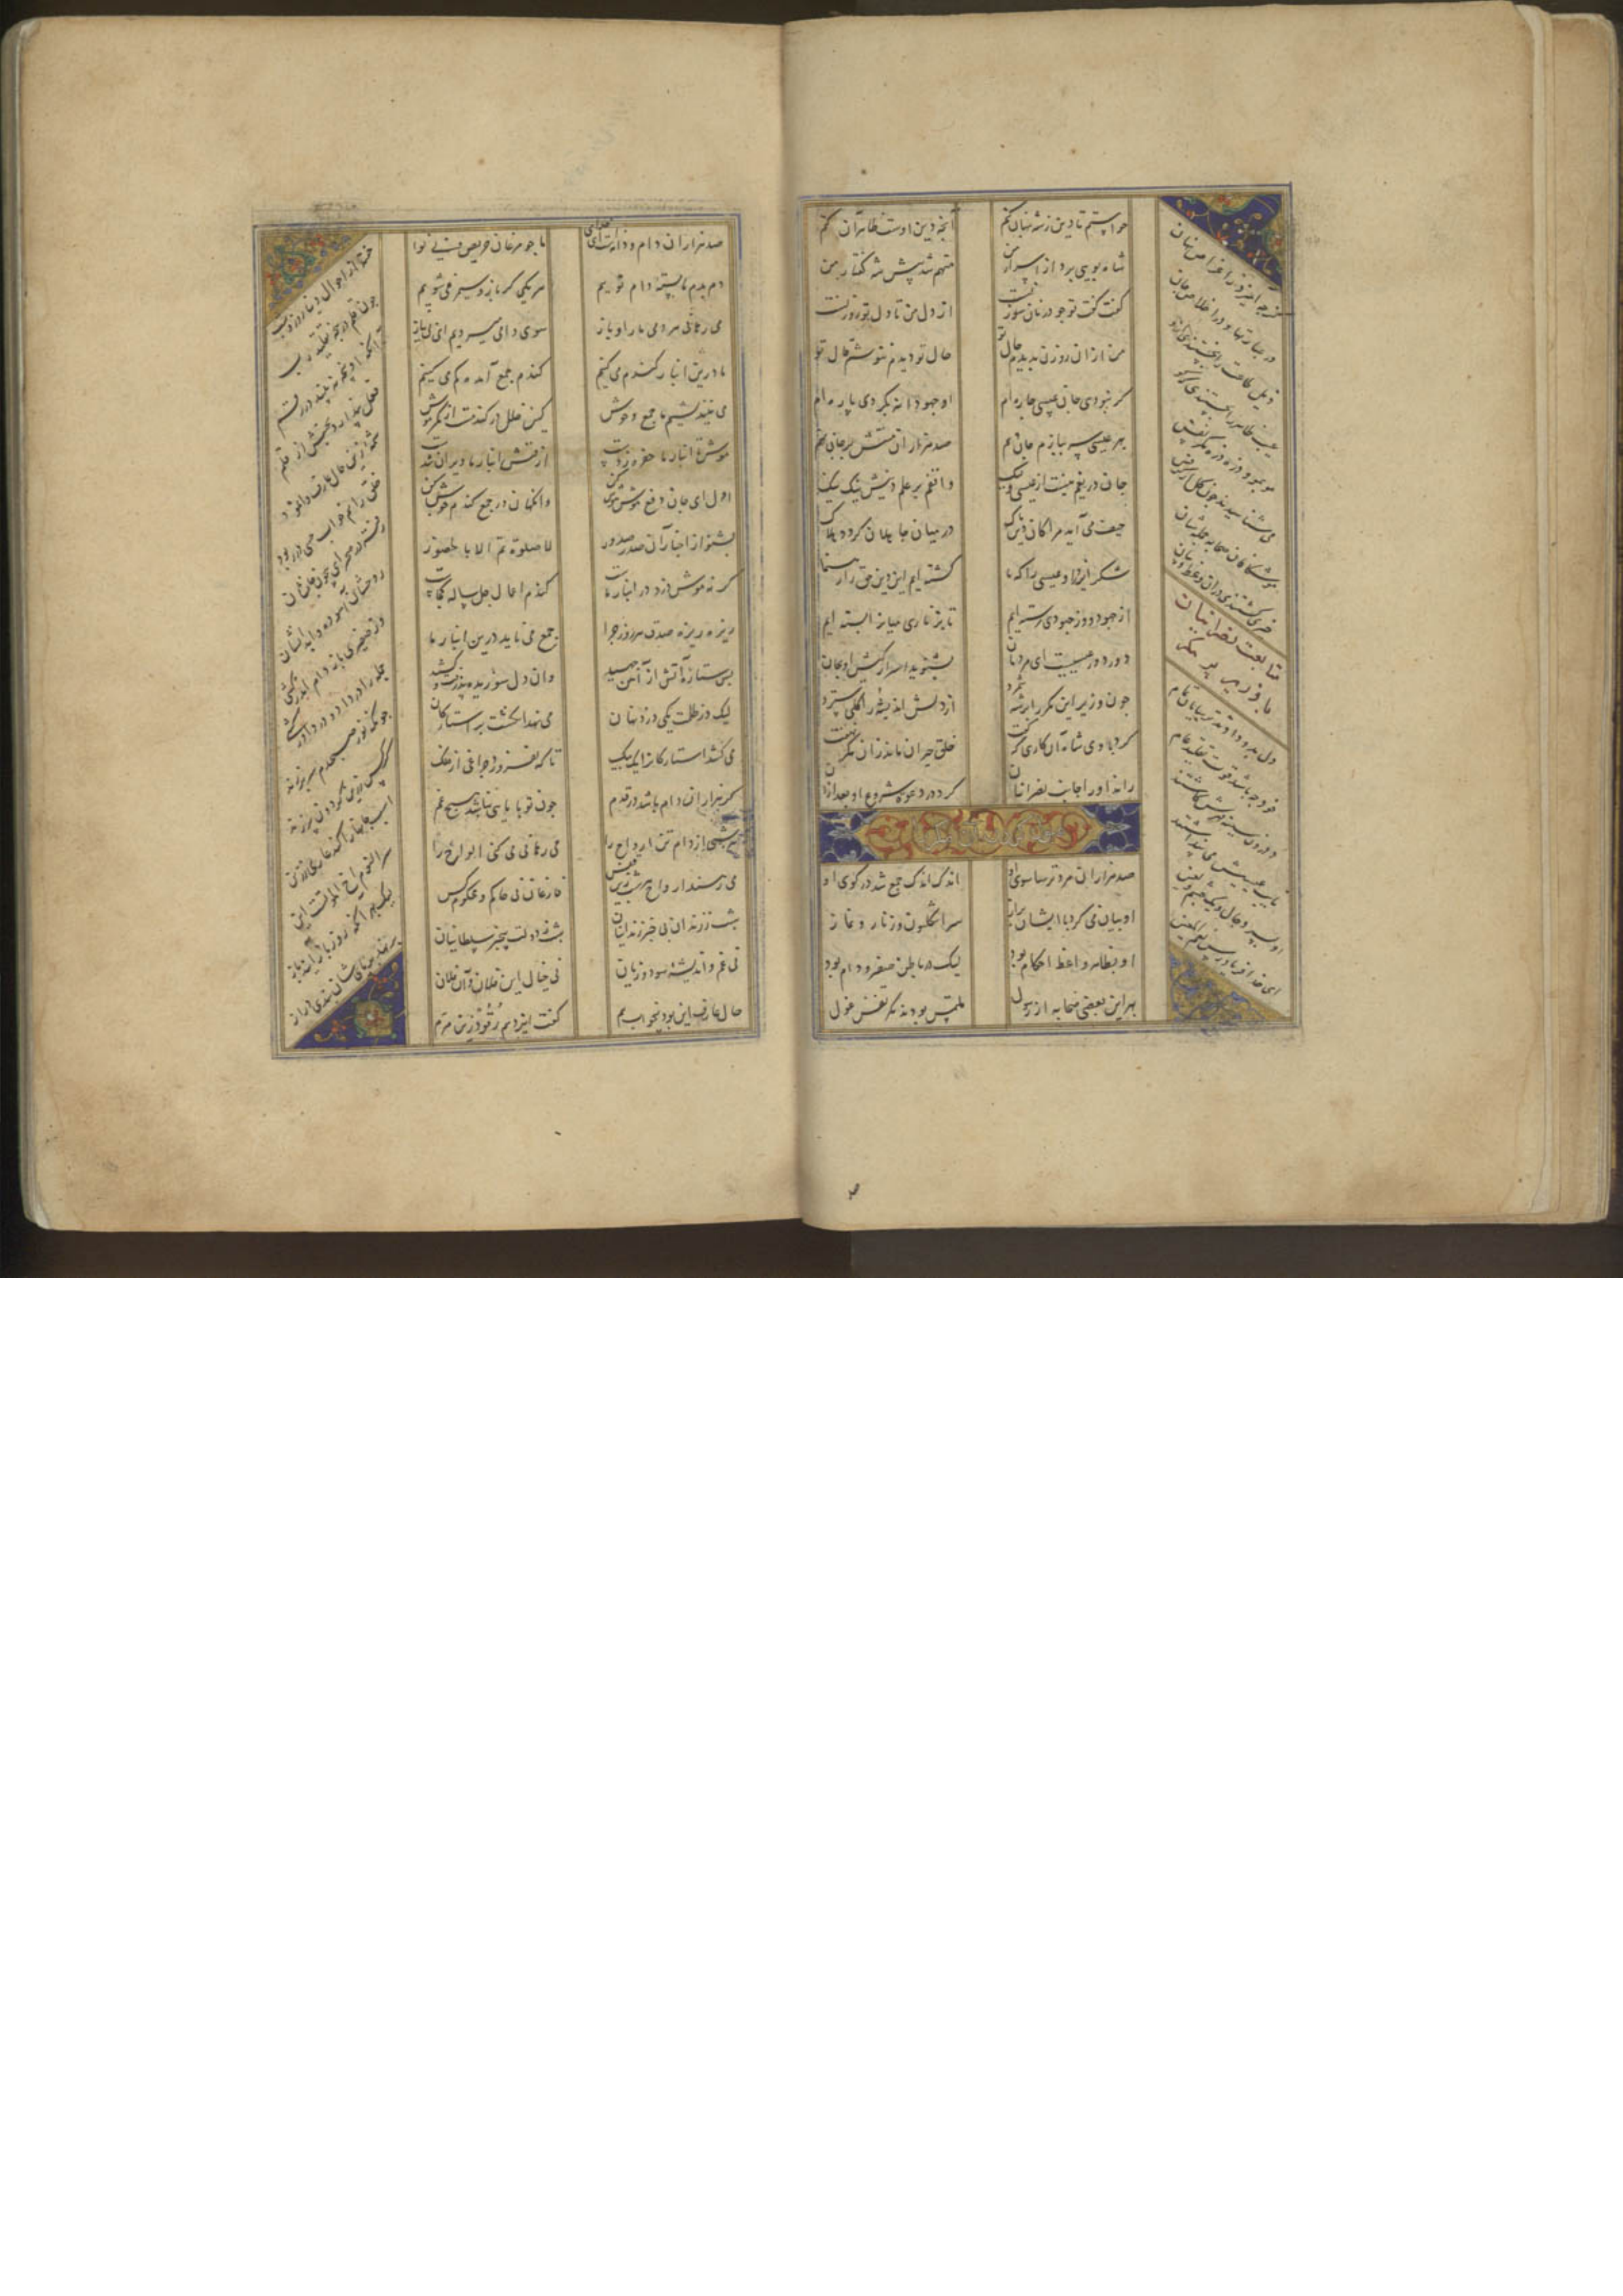 خواستم تا دین ز شه پنهان کنم آنچه دین اوست ظاهر آن کنم
شاه بویی برد از اسرار من متهم شد پیش شه گفتار من
گفت گفت تو چو در نان سوزنست از دل من تا دل تو روزنست
من از ان روزن بدیدم حال تو حال تو دیدم ننوشم قال تو
گر نبودی جان عیسی چاره ام او جهودانه بکردی پاره ام
بهر عیسی سر ببازم جان دهم صد هزاران منتش بر جان نهم
جان دریغم نیست از عیسی ولیک واقفم بر علم دینش نیک نیک
حیف می آید مرا کان دین پاک در میان جاهلان گردد هلاک
شکر ایزد را و عیسی را که ما گشته ایم این دین حق را رهنما
از جهود و از جهودی رسته ایم تا بزناری میان را بسته ایم
دور دور عیسیست ای مردمان بشنوید اسرار کیش او بجان
چون وزیر این مکر را بر شه شمرد از دلش اندیشه را کلی سترد
کرد با وی شاه آن کاری که گفت خلق حیران مانده زان مکر نهفت
راند او را جانب نصرانیان کرد در دعوت شروع او بعد ازان
صد هزاران مرد ترسا سوی او اندک اندک جمع شد در کوی او
او بیان می کرد با ایشان براز سر انگلیون و زنار و نماز
او بظاهر واعظ احکام بود لیک در باطن صفیر و دام بود
بهر این بعضی صحابه از رسول ملتمس بودند مکر نفس غول
کو چه آمیزد ز اغراض نهان
در عبادتها و در اخلاص جان
فضل طاعت را نجستندی ازو
عیب ظاهر را بجستندی که کو
مو بمو و ذره ذره مکر نفس
می شناسیدند چون گل از کرفس
موشکافان صحابه جمله شان
خیره گشتندی دران وعظ و بیان
متابعت نصرانیان
با وزیر پر مکر
دل بدو دادند ترسایان تمام
خود چه باشد قوت تقلید عام
در درون سینه مهرش کاشتند
نایب عیسیش می پنداشتند
او بسر دجال یک چشم لعین
ای خدا فریاد رس نعم المعین
صد هزاران دام و دانه است ای خدای ما چو مرغان حریص بی نوا
دم بدم ما بسته دام نویم هر یکی گر باز و سیمرغی شویم
می رهانی هر دمی ما را و باز سوی دامی میرویم ای بی نیاز
ما درین انبار گندم می کنیم گندم جمع آمده گم می کنیم
می نیندیشیم ما جمع وحوش کین خلل در گندمست از مکر موش
موش تا انبار ما حفره زدست از فنش انبار ما ویران شدست
اول ای جان دفع شر موش کن وانگهان در جمع گندم جوش کن
بشنو از اخبار آن صدر صدور لا صلوة تم الا بالحضور
گر نه موش دزد در انبار ماست گندم اعمال چل ساله کجاست
ریزه ریزه صدق هر روز چرا جمع می ناید درین انبار ما
بس ستاره آتش از آهن جهید وان دل سوزیده پذرفت و کشید
لیک در ظلمت یکی دزد نهان می نهد انگشت بر استارگان
می کشد استارگان را یک بیک تا که نفروزد چراغی از فلک
گر هزاران دام باشد در قدم چون تو با مایی نباشد هیچ غم
هر شبی از دام تن ارواح را می رهانی می کنی الواح را
می رهند ارواح هر شب زین قفس فارغان نی حاکم و محکوم کس
شب ز زندان بی خبر زندانیان شب ز دولت بیخبر سلطانیان
نی غم و اندیشه سود و زیان نی خیال این فلان و آن فلان
حال عارف این بود بیخواب هم گفت ایزد هم رقود زین مرم
خفته از احوال دنیا روز و شب
چون قلم در پنجه تقلیب رب
آنکه او پنجه نبیند در رقم
فعل پندارد بجنبش از قلم
شمه زین حال عارف وانمود
خلق را هم خواب حسی در ربود
رفته در صحرای بیچون جانشان
روحشان آسوده و ابدانشان
وز صفیری باز دام اندر کشی
جمله را در داد و در داور کشی
چونکه نور صبحدم سر بر زند
کرکس زرین گردون پر زند
اسب جانها را کند عاری ز زین
سر النوم اخ الموتست این
لیک بهر آنکه روز آیند باز
بر نهد بر پایشان بند دراز